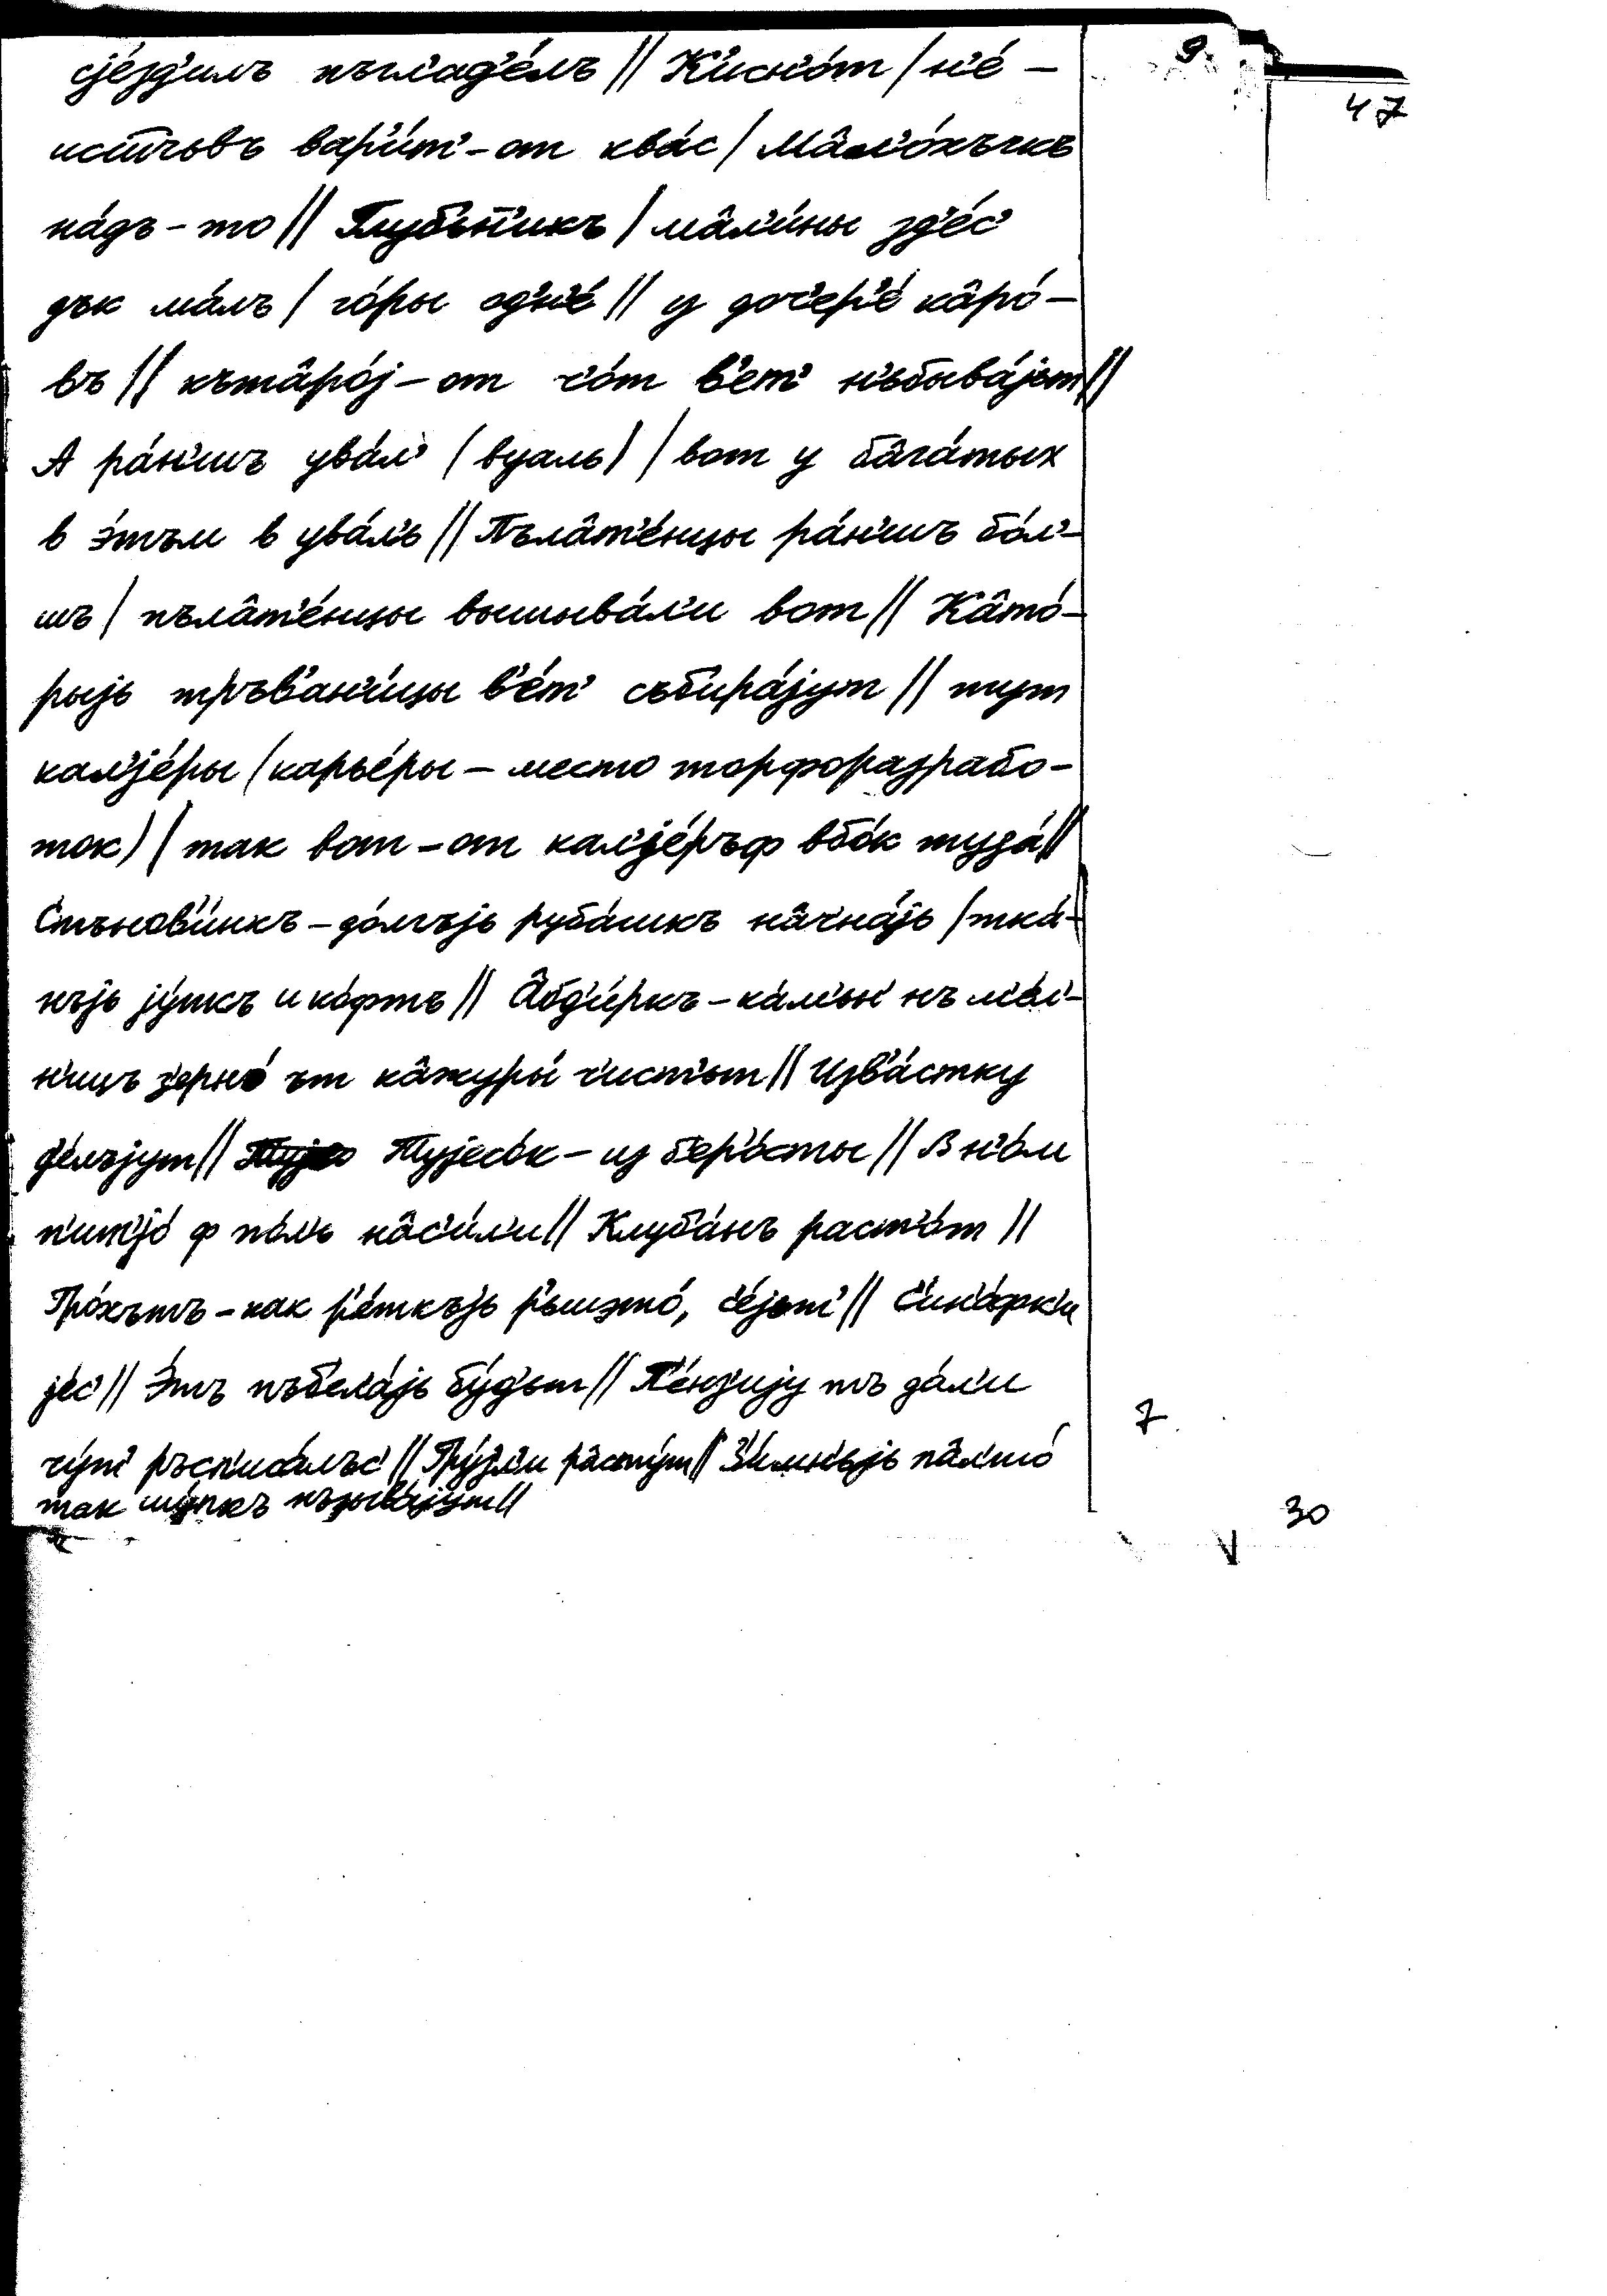 9.
47
сjе́зд'илъ пъгл'ад'е́лъ // К'исн'о́т / н'е́ –
исти'ьвъ вар'и́т'-от ква́с / Мâл'о́хъчкъ
на́дъ-то // Глубън'икъ / мâл'и́ны зд'е́с'
дък ма́лъ / го́ры одн'е́ // у доч'ер'е́ кâро́-
въ // кътâро́j-от го́т в'ет' н'ьбыва́jьт //
А ра́н'шъ ува́л' (вуаль) / вот у бâга́тых
в э́тъм в ува́л'ь // Пълâт'е́нцы ра́н'шъ бо́л'-
шъ / пълâт'е́нцы вышыва́л'и вот // Кâто́-
рыjь тръв'ан'и́цы в'е́т' съб'ира́jут // тут
кал'jе́ры (карье́ры – место торфоразрабо-
ток) / так вот-от кал'jе́ръф вбо́к туда́ //
Стънов'и́нкъ – до́лгъjь руба́шкъ нâчна́jь / тка́-
нъjь jу́пкъ и ко́фтъ // Âбд'и́ркъ – ка́м'ьн' нъ м'е́л'-
н'ицъ з'ерно́ ът кâжуры́ ч'ист'ьт // Изв'а́стку
д'е́лъjут // Туjесо́к – из б'ер'о́сты // В н'о́м
п'ит'jо́ ф по́л'ь нâс'и́л'и // Клуб'а́нъ раст'о́т //
Гро́хътъ – как р'е́ткъjь р'ьшэто́, с'е́jьт' // С'ин'о́фк'и
jе́с' // Э́тъ пъб'ела́jь бу́д'ьт // П'е́нз'иjу тъ да́л'и
чу́т' ръсп'иса́лъс' // Гру́зл'и рâсту́т // З'и́мн'ьjь пâл'то́
так шу́пкъ нъзыва́jут //
7
30